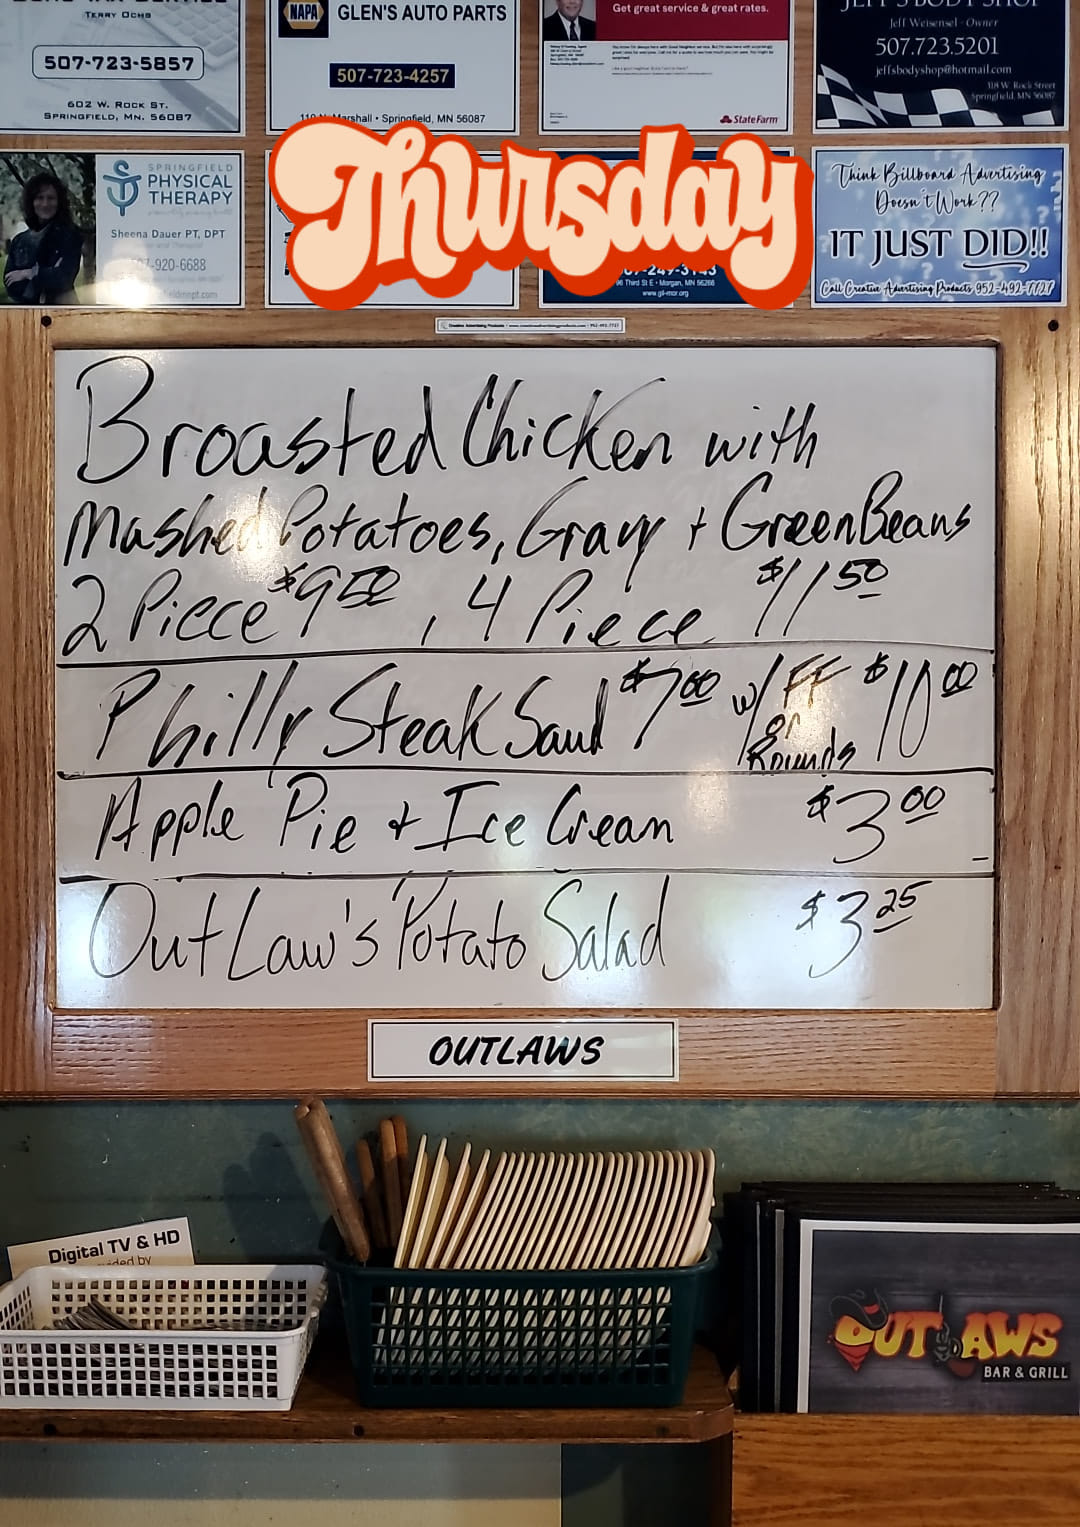 TERRY OCHS
507-723-5857
602 W. ROCK ST.
SPRINGFIELD, MN. 56087
NAPA
GLEN'S AUTO PARTS
507-723-4257
Marshall • Springfield, MN 56087
Get great service & great rates.
StateFarm
JEFF'S BODY SHOP
Jeff Weisensel - Owner
507.723.5201
jeffsbodyshop@hotmail.com
318 W. Rock Street
Springfield, MN 56087
SPRINGFIELD
PHYSICAL
THERAPY
Sheena Dauer PT, DPT
07-920-6688
Thursday
07-249-3143
96 Third St E • Morgan, MN 56266
www.gil-mor.org
Think Billboard Advertising
Doesn't Work??
IT JUST DID!!
Call Creative Advertising Products 952-492-7727
Broasted Chicken with
Mashed Potatoes, Gravy + Green Beans
2 Piece $9 50, 4 Piece $11 50
Philly Steak Sand $7 00 w/ FF or Rounds $10 00
Apple Pie + Ice Cream $3 00
OutLaw's Potato Salad $3 25
OUTLAWS
Digital TV & HD
OUTLAWS
BAR & GRILL